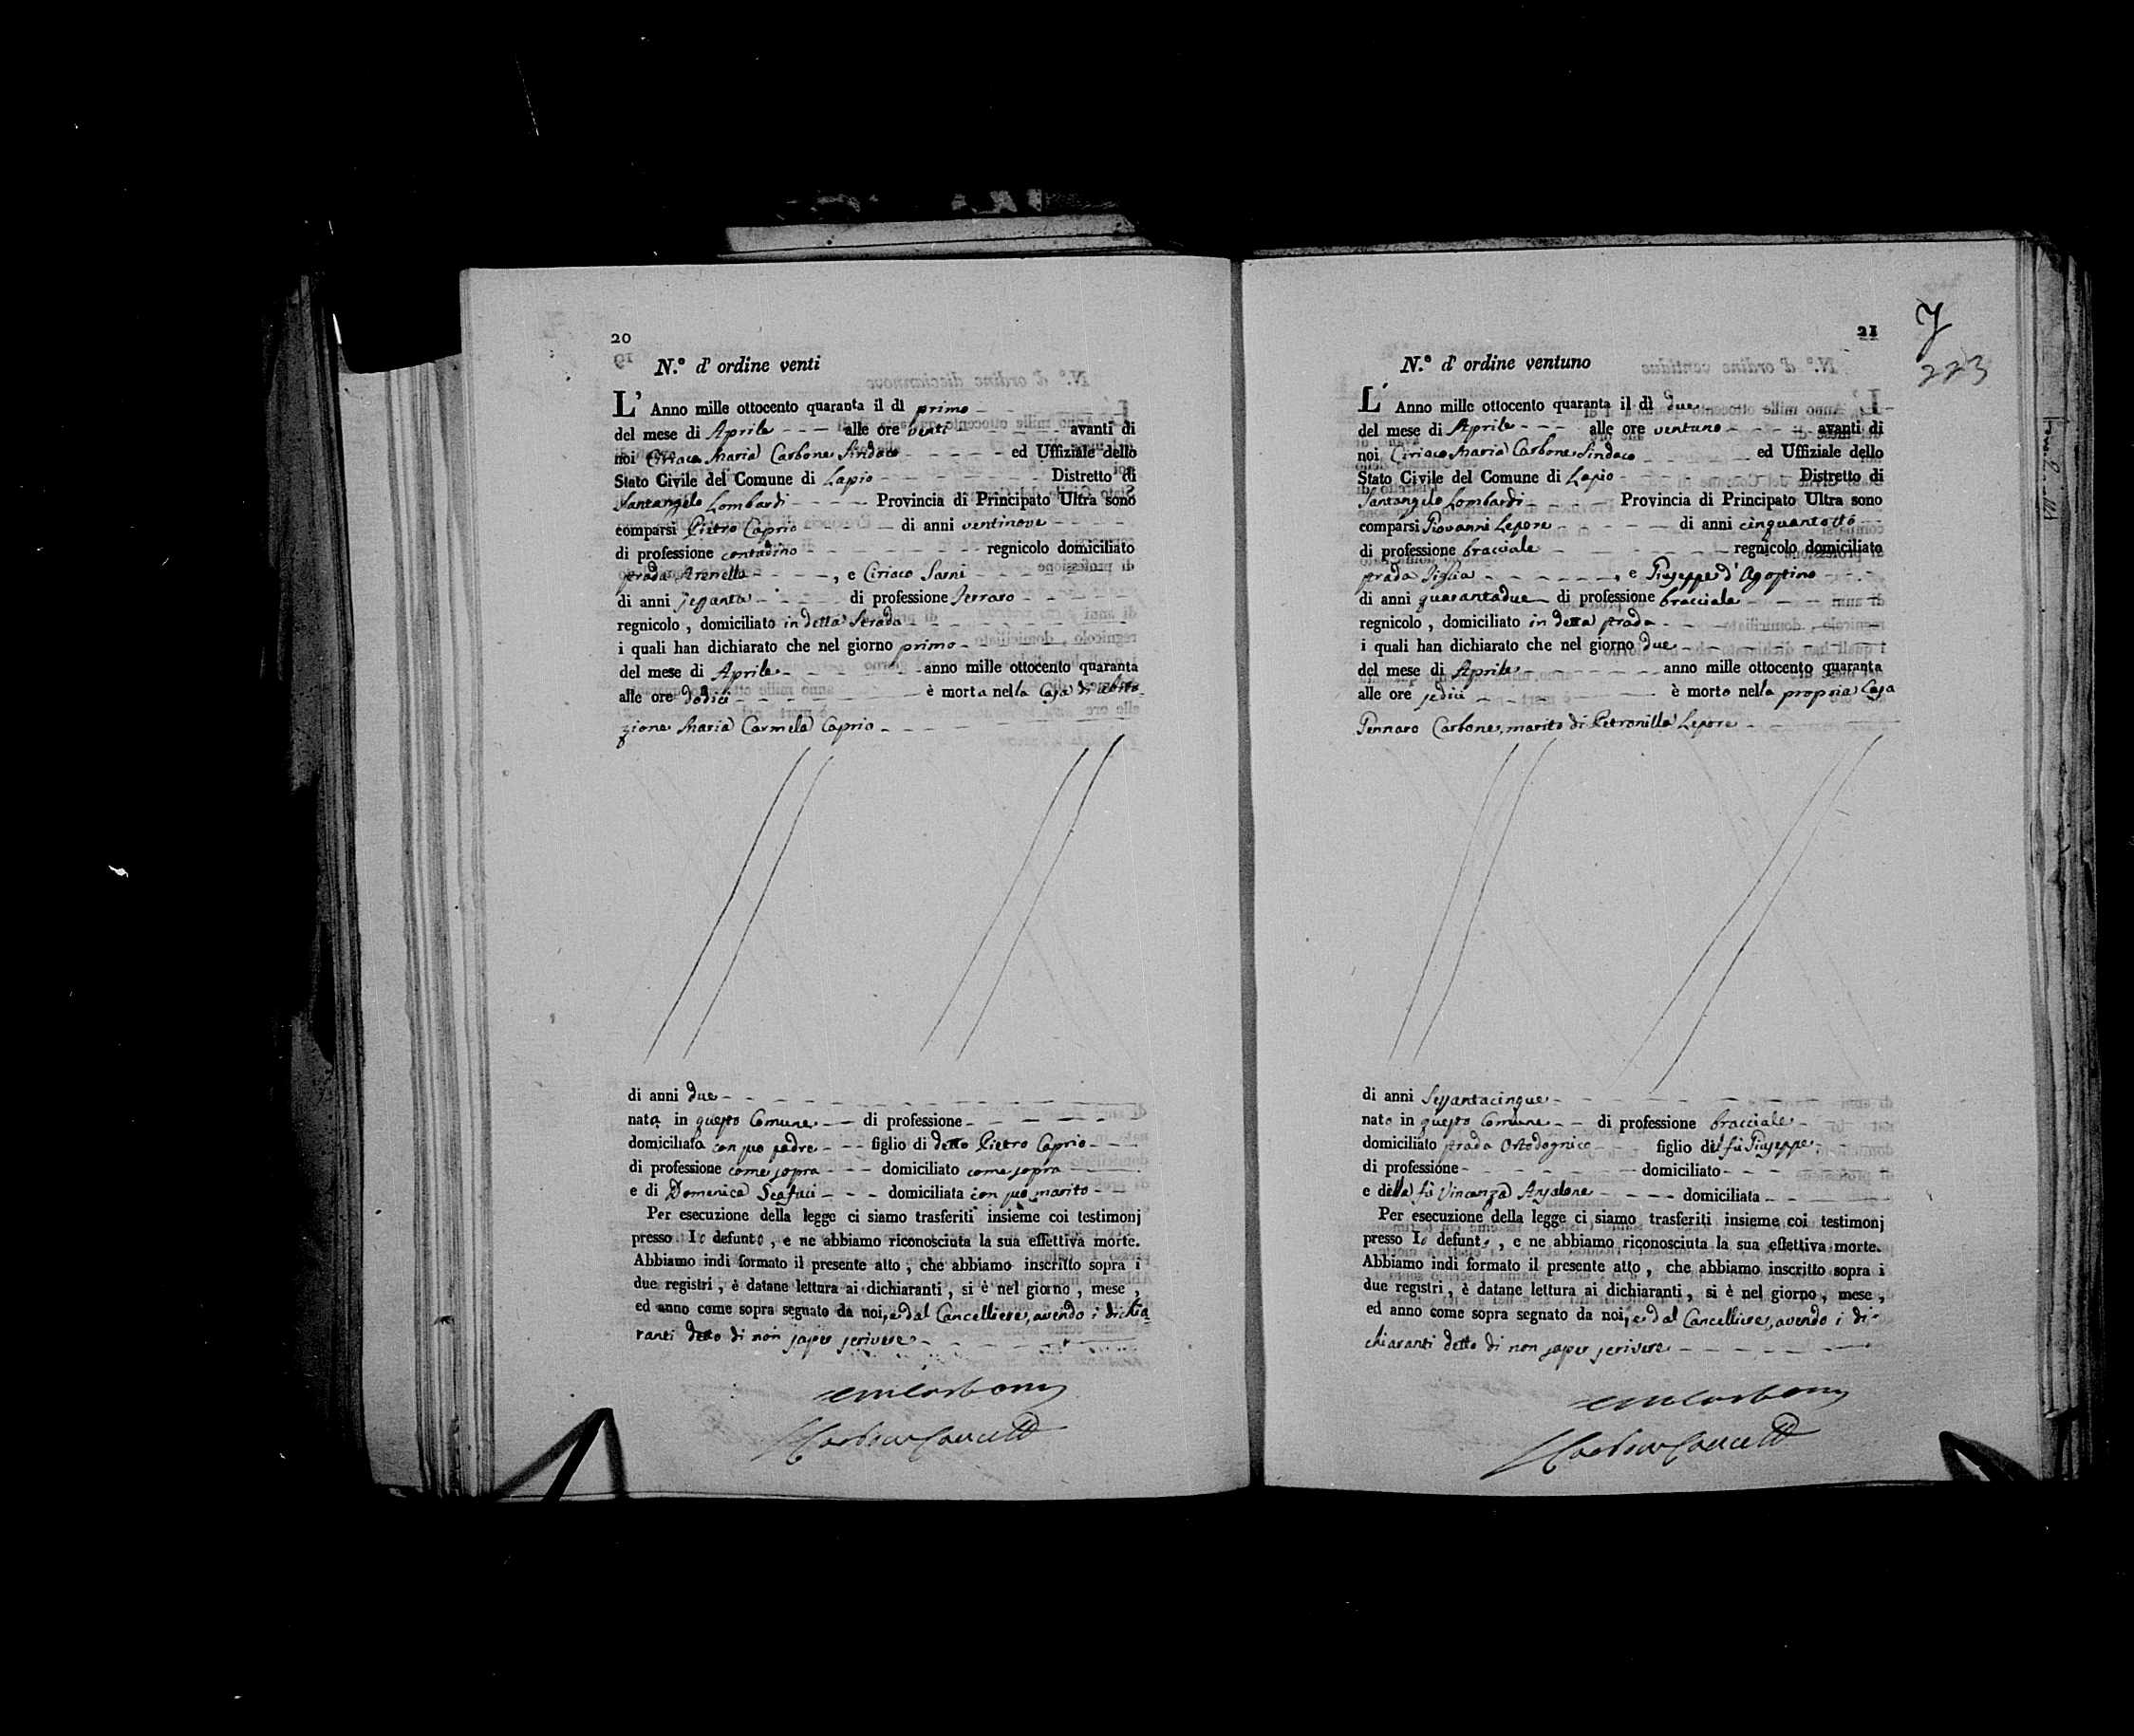 20
N.º d' ordine venti
L' Anno mille ottocento quaranta il dì primo
del mese di Aprile alle ore venti avanti di
noi Ciriaco Maria Carbone Sindaco ed Uffiziale dello
Stato Civile del Comune di Lapio Distretto di
Santangelo Lombardi Provincia di Principato Ultra sono
comparsi Pietro Caprio di anni ventinove
di professione contadino regnicolo domiciliato
strada Arenella, e Ciriaco Sarni
di anni sessanta di professione Ferraro
regnicolo, domiciliato in detta Strada
i quali han dichiarato che nel giorno primo
del mese di Aprile anno mille ottocento quaranta
alle ore dodici è morta nella Casa di abita-
zione Maria Carmela Caprio
di anni due
nata in questo Comune di professione
domiciliata con suo padre figlio di detto Pietro Caprio
di professione come sopra domiciliato come sopra
e di Domenica Scafuci domiciliata con suo marito
Per esecuzione della legge ci siamo trasferiti insieme coi testimonj
presso lo defunto, e ne abbiamo riconosciuta la sua effettiva morte.
Abbiamo indi formato il presente atto, che abbiamo inscritto sopra i
due registri, è datane lettura ai dichiaranti, si è nel giorno, mese,
ed anno come sopra segnato da noi, e dal Cancelliere, avendo i dichia-
ranti detto di non saper scrivere
CMCarbone
Carbone Cancell
21
223
N.º d' ordine ventuno
L' Anno mille ottocento quaranta il dì due
del mese di Aprile alle ore ventuno avanti di
noi Ciriaco Maria Carbone Sindaco ed Uffiziale dello
Stato Civile del Comune di Lapio Distretto di
Santangelo Lombardi Provincia di Principato Ultra sono
comparsi Giovanni Lepore di anni cinquantotto
di professione bracciale regnicolo domiciliato
strada, e Giuseppe d'Agostino
di anni quarantadue di professione bracciale
regnicolo, domiciliato in detta strada
i quali han dichiarato che nel giorno due
del mese di Aprile anno mille ottocento quaranta
alle ore sedici è morto nella propria Casa
Gennaro Carbone, marito di Petronilla Lepore
di anni Sessantacinque
nato in questo Comune di professione bracciale
domiciliato strada Ortodognico figlio del fù Giuseppe
di professione domiciliato
e della fù Vincenza Anzalone domiciliata
Per esecuzione della legge ci siamo trasferiti insieme coi testimonj
presso lo defunto, e ne abbiamo riconosciuta la sua effettiva morte.
Abbiamo indi formato il presente atto, che abbiamo inscritto sopra i
due registri, è datane lettura ai dichiaranti, si è nel giorno, mese,
ed anno come sopra segnato da noi, e dal Cancelliere, avendo i di-
chiaranti detto di non saper scrivere
CMCarbone
Carbone Cancell